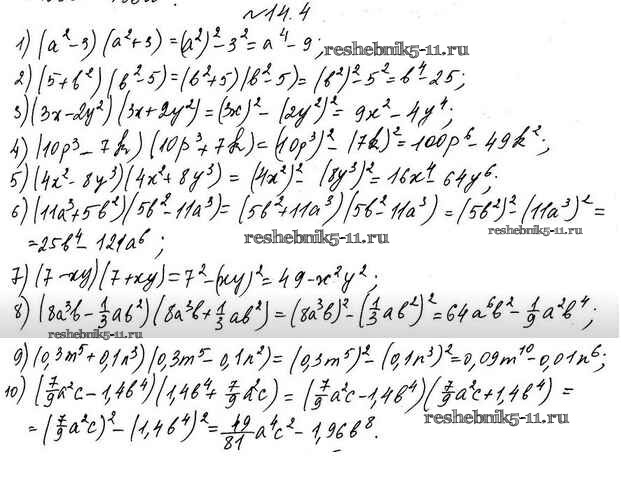 №14.4
1) (a²-3)(a²+3)=(a²)²-3²=a⁴-9; reshebnik5-11.ru
2) (5+b²)(b²-5)=(b²+5)(b²-5)=(b²)²-5²=b⁴-25;
3) (3x-2y²)(3x+2y²)=(3x)²-(2y²)²=9x²-4y⁴;
4) (10p³-7k)(10p³+7k)=(10p³)²-(7k)²=100p⁶-49k²;
5) (4x²-8y³)(4x²+8y³)=(4x²)²-(8y³)²=16x⁴-64y⁶;
6) (11a³+5b²)(5b²-11a³)=(5b²+11a³)(5b²-11a³)=(5b²)²-(11a³)²=
=25b⁴-121a⁶; reshebnik5-11.ru
7) (7-xy)(7+xy)=7²-(xy)²=49-x²y²;
8) (8a³b-1/3ab²)(8a³b+1/3ab²)=(8a³b)²-(1/3ab²)²=64a⁶b²-1/9a²b⁴;
reshebnik5-11.ru
9) (0,3m⁵+0,1n³)(0,3m⁵-0,1n²)=(0,3m⁵)²-(0,1n³)²=0,09m¹⁰-0,01n⁶;
10) (7/9a²c-1,4b⁴)(1,4b⁴+7/9a²c)=(7/9a²c-1,4b⁴)(7/9a²c+1,4b⁴)=
=(7/9a²c)²-(1,4b⁴)²=49/81a⁴c²-1,96b⁸. reshebnik5-11.ru